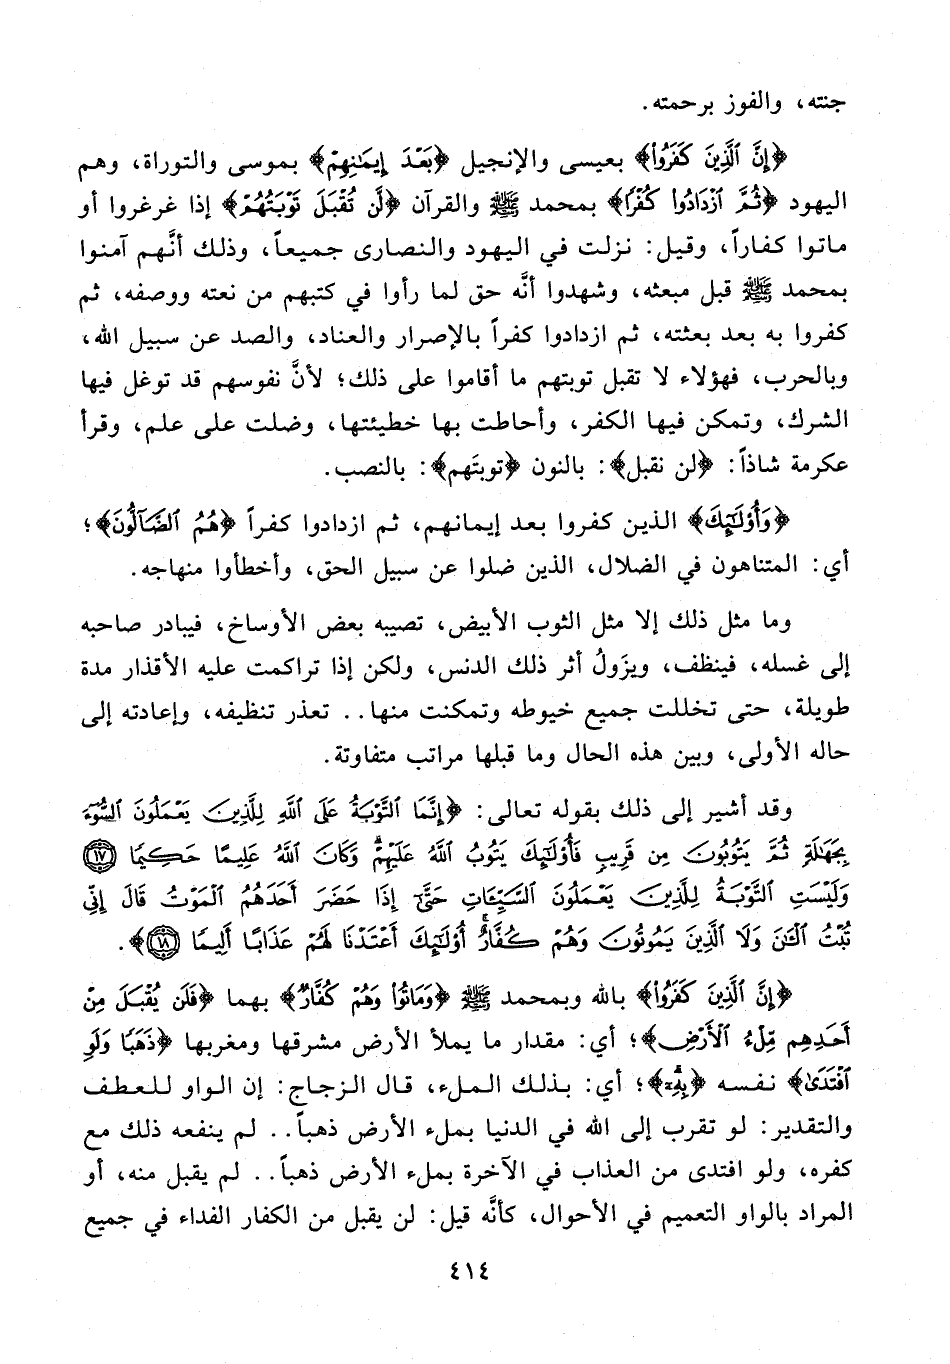 جنته، والفوز برحمته.
﴿إِنَّ ٱلَّذِينَ كَفَرُوا۟﴾ بعيسى والإنجيل ﴿بَعْدَ إِيمَٰنِهِمْ﴾ بموسى والتوراة، وهم
اليهود ﴿ثُمَّ ٱزْدَادُوا۟ كُفْرًا﴾ بمحمد ﷺ والقرآن ﴿لَّن تُقْبَلَ تَوْبَتُهُمْ﴾ إذا غرغروا أو
ماتوا كفاراً، وقيل: نزلت في اليهود والنصارى جميعاً، وذلك أنَّهم آمنوا
بمحمد ﷺ قبل مبعثه، وشهدوا أنَّه حق لما رأوا في كتبهم من نعته ووصفه، ثم
كفروا به بعد بعثته، ثم ازدادوا كفراً بالإصرار والعناد، والصد عن سبيل الله،
وبالحرب، فهؤلاء لا تقبل توبتهم ما أقاموا على ذلك؛ لأنَّ نفوسهم قد توغل فيها
الشرك، وتمكن فيها الكفر، وأحاطت بها خطيئتها، وضلت على علم، وقرأ
عكرمة شاذاً: ﴿لن نقبل﴾: بالنون ﴿توبتَهم﴾: بالنصب.
﴿وَأُو۟لَٰٓئِكَ﴾ الذين كفروا بعد إيمانهم، ثم ازدادوا كفراً ﴿هُمُ ٱلضَّآلُّونَ﴾؛
أي: المتناهون في الضلال، الذين ضلوا عن سبيل الحق، وأخطأوا منهاجه.
وما مثل ذلك إلا مثل الثوب الأبيض، تصيبه بعض الأوساخ، فيبادر صاحبه
إلى غسله، فينظف، ويزَولُ أثر ذلك الدنس، ولكن إذا تراكمت عليه الأقذار مدة
طويلة، حتى تخللت جميع خيوطه وتمكنت منها.. تعذر تنظيفه، وإعادته إلى
حاله الأولى، وبين هذه الحال وما قبلها مراتب متفاوتة.
وقد أشير إلى ذلك بقوله تعالى: ﴿إِنَّمَا ٱلتَّوْبَةُ عَلَى ٱللَّهِ لِلَّذِينَ يَعْمَلُونَ ٱلسُّوٓءَ
بِجَهَٰلَةٍ ثُمَّ يَتُوبُونَ مِن قَرِيبٍ فَأُو۟لَٰٓئِكَ يَتُوبُ ٱللَّهُ عَلَيْهِمْ ۗ وَكَانَ ٱللَّهُ عَلِيمًا حَكِيمًا ١٧
وَلَيْسَتِ ٱلتَّوْبَةُ لِلَّذِينَ يَعْمَلُونَ ٱلسَّيِّـَٔاتِ حَتَّىٰٓ إِذَا حَضَرَ أَحَدَهُمُ ٱلْمَوْتُ قَالَ إِنِّى
تُبْتُ ٱلْـَٰٔنَ وَلَا ٱلَّذِينَ يَمُوتُونَ وَهُمْ كُفَّارٌ ۚ أُو۟لَٰٓئِكَ أَعْتَدْنَا لَهُمْ عَذَابًا أَلِيمًا ١٨﴾.
﴿إِنَّ ٱلَّذِينَ كَفَرُوا۟﴾ بالله وبمحمد ﷺ ﴿وَمَاتُوا۟ وَهُمْ كُفَّارٌ﴾ بهما ﴿فَلَن يُقْبَلَ مِنْ
أَحَدِهِم مِّلْءُ ٱلْأَرْضِ﴾؛ أي: مقدار ما يملأ الأرض مشرقها ومغربها ﴿ذَهَبًا وَلَوِ
ٱفْتَدَىٰ﴾ نفسه ﴿بِهِۦٓ﴾؛ أي: بذلك الملء، قال الزجاج: إن الواو للعطف
والتقدير: لو تقرب إلى الله في الدنيا بملء الأرض ذهباً.. لم ينفعه ذلك مع
كفره، ولو افتدى من العذاب في الآخرة بملء الأرض ذهباً.. لم يقبل منه، أو
المراد بالواو التعميم في الأحوال، كأنَّه قيل: لن يقبل من الكفار الفداء في جميع
٤١٤